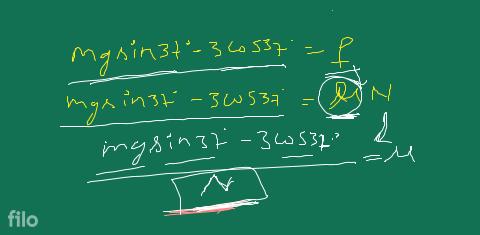 mgsin37° - 3cos37° = f
mgsin37° - 3cos37° = μN
mgsin37° - 3cos37° = μ
N
filo